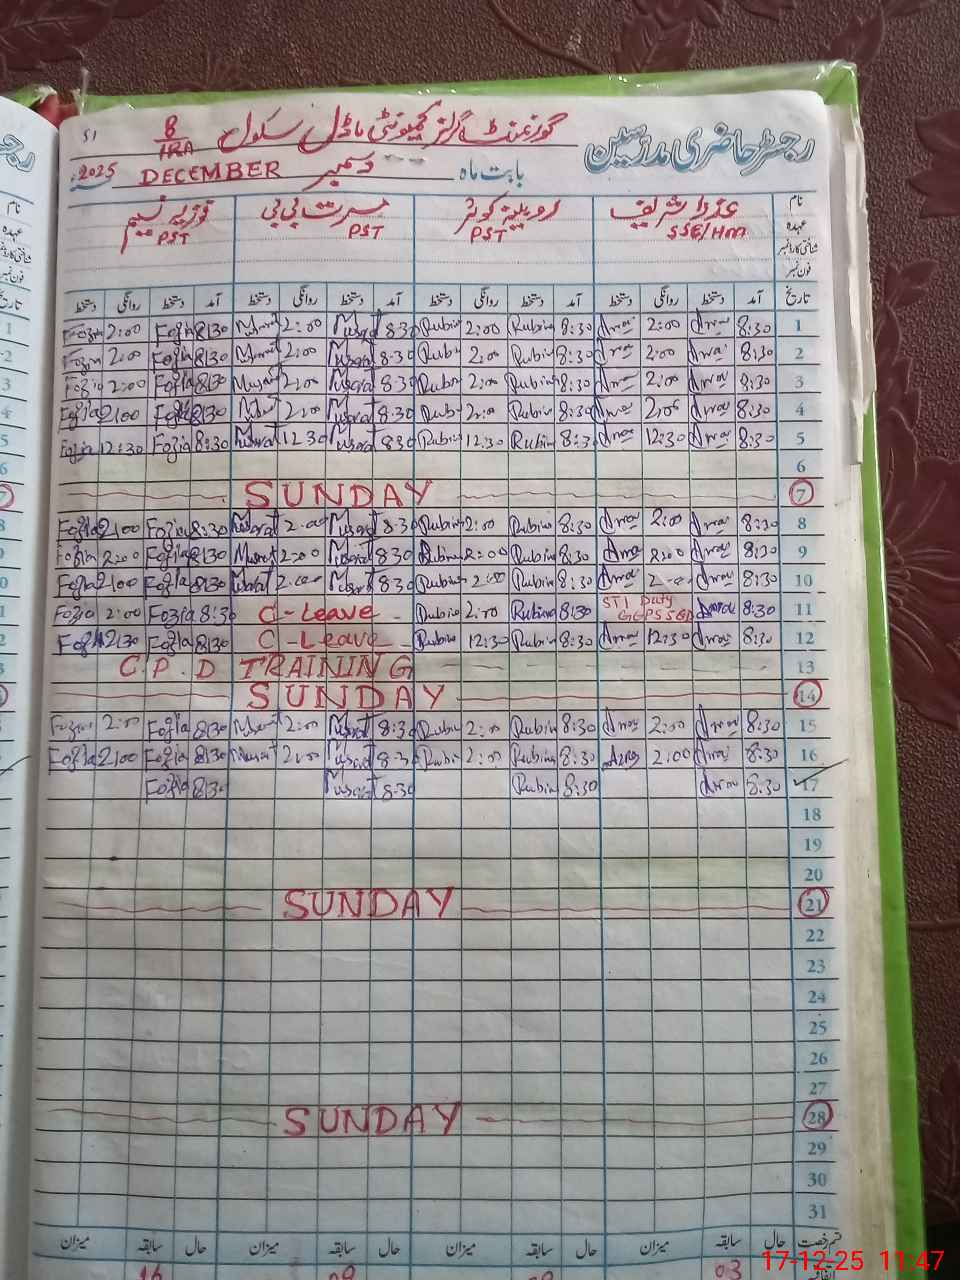 رجسٹر حاضری مدرسین گورنمنٹ گرلز کمیونٹی ماڈل سکول 8/1RA 51
بابت ماہ دسمبر DECEMBER 2025
نام عذرا شریف روبینہ کوثر مسرت بی بی فوزیہ نسیم
عہدہ SSE/HM PST PST PST
شناختی کارڈ نمبر
فون نمبر
تاریخ آمد دستخط روانگی دستخط آمد دستخط روانگی دستخط آمد دستخط روانگی دستخط آمد دستخط روانگی دستخط
1 8:30 2:00 8:30 Rubina 2:00 8:30 Musarat 2:00 8:30 Fozia 2:00
2 8:30 2:00 8:30 Rubina 2:00 8:30 Musarat 2:00 8:30 Fozia 2:00
3 8:30 2:00 8:30 Rubina 2:00 8:30 Musarat 2:00 8:30 Fozia 2:00 Fozia
4 8:30 2:00 8:30 Rubina 2:00 8:30 Musarat 2:00 8:30 2:00 Fozia
5 8:30 12:30 8:30 Rubina 12:30 8:30 Musarat 12:30 8:30 Fozia 12:30 Fozia
6
7 SUNDAY
8 8:30 2:00 8:30 Rubina 2:00 8:30 Musarat 2:00 8:30 Fozia 2:00 Fozia
9 8:30 2:00 8:30 Rubina 2:00 8:30 Musarat 2:00 8:30 Fozia 2:00 Fozia
10 8:30 2:00 8:30 Rubina 2:00 8:30 Musarat 2:00 8:30 Fozia 2:00 Fozia
11 8:30 STI Duty 8:30 Rubina 2:00 C-Leave 8:30 Fozia 2:00 Fozia
12 8:30 12:30 8:30 Rubina 12:30 C-Leave 8:30 Fozia 12:30
13 C.P.D TRAINING
14 SUNDAY
15 8:30 2:00 8:30 Rubina 2:00 8:30 Musarat 2:00 8:30 Fozia 2:00
16 8:30 2:00 8:30 Rubina 2:00 8:30 Musarat 2:00 8:30 Fozia 2:00 Fozia
17 8:30 8:30 Rubina 8:30 Musarat 8:30 Fozia
18
19
20
21 SUNDAY
22
23
24
25
26
27
28 SUNDAY
29
30
31
قسم رخصت حال سابقہ میزان حال سابقہ میزان حال سابقہ میزان حال سابقہ میزان
اتفاقیہ 03 16
17-12-25 11:47